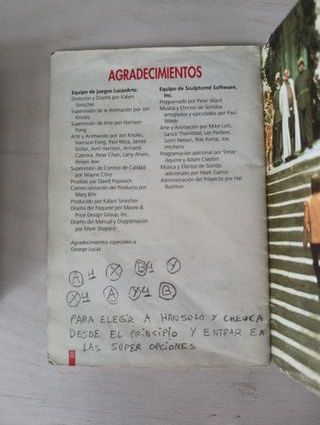 AGRADECIMIENTOS
Equipo de Juegos LucasArts:
Dirección y Diseño por Kalani
Streicher
Supervisión de la Animación por Jon
Knoles
Supervisión de Arte por Harrison
Fong
Arte y Animación por Jon Knoles,
Harrison Fong, Paul Mica, James
Dollar, Avril Harrison, Armand
Cabrera, Peter Chan, Larry Ahern,
Anson Jew
Supervisión de Control de Calidad
por Wayne Cline
Pruebas por David Popovich
Comercialización del Producto por
Mary Bihr
Producido por Kalani Streicher
Diseño del Paquete por Moore &
Price Design Group, Inc
Diseño del Manual y Diagramación
por Mark Shepard
Agradecimientos especiales a
George Lucas
Equipo de Sculptured Software,
Inc.
Programado por Peter Ward
Música y Efectos de Sonidos
arreglados y ejecutados por Paul
Webb
Arte y Animación por Mike Lott,
Lance Thornblad, Les Pardew,
Lorin Nelson, Rob Kemp, Joe
Hitchens
Programación adicional por Steve
Aguirre y Adam Clayton
Música y Efectos de Sonido
adicionales por Mark Ganus
Administración del Proyecto por Hal
Rushton
A 4 X B4 Y
X A Y4 B
PARA ELEGIR A HANSOLO Y CHEUCA
DESDE EL PRINCIPIO Y ENTRAR EN
LAS SUPER OPCIONES